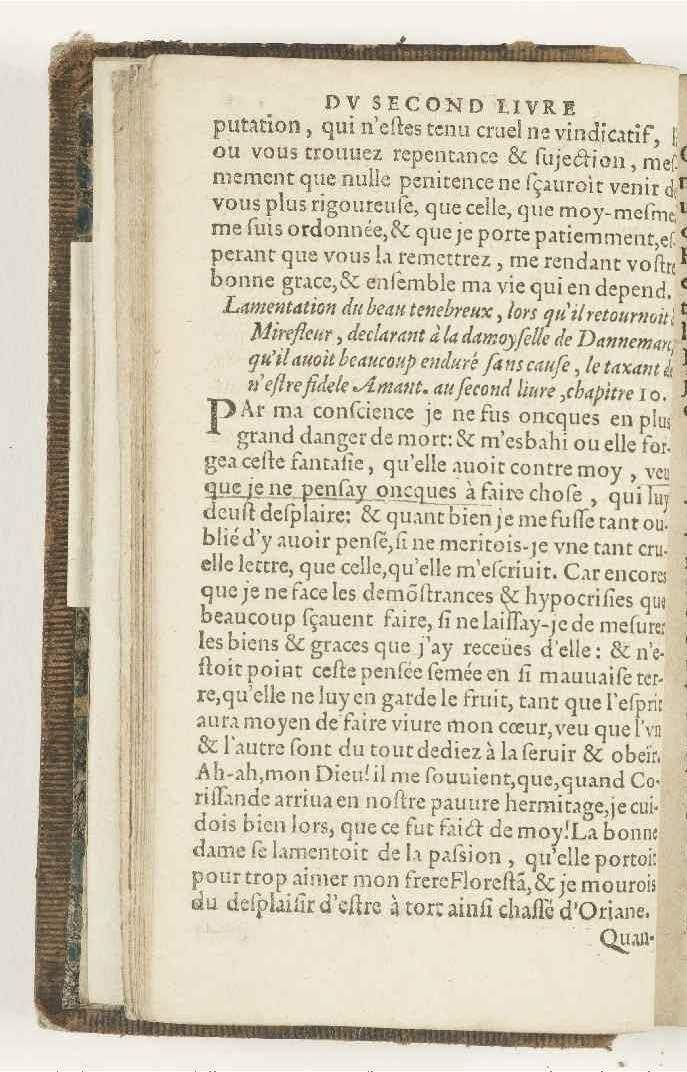 DV SECOND LIVRE
putation, qui n'eſtes tenu cruel ne vindicatif,
ou vous trouuez repentance & ſujection, meſ-
mement que nulle penitence ne ſçauroit venir de
vous plus rigoureuſe, que celle, que moy-meſme
me ſuis ordonnée, & que je porte patiemment, eſ-
perant que vous la remettrez, me rendant voſtre
bonne grace, & enſemble ma vie qui en depend.
Lamentation du beau tenebreux, lors qu'il retournoit
Mirefleur, declarant à la damoyſelle de Dannemarc
qu'il auoit beaucoup enduré ſans cauſe, le taxant de
n'eſtre fidele Amant. au ſecond liure, chapitre 10.
PAr ma conſcience je ne fus oncques en plus
grand danger de mort: & m'esbahi ou elle for-
gea ceſte fantaſie, qu'elle auoit contre moy, veu
que je ne penſay oncques à faire choſe, qui luy
deuſt deſplaire: & quant bien je me fuſſe tant ou-
blié d'y auoir penſé, ſi ne meritois-je vne tant cru-
elle lettre, que celle, qu'elle m'eſcriuit. Car encores
que je ne face les demõſtrances & hypocriſies que
beaucoup ſçauent faire, ſi ne laiſſay-je de meſurer
les biens & graces que j'ay receües d'elle: & n'e-
ſtoit point ceſte penſée ſemée en ſi mauuaiſe ter-
re, qu'elle ne luy en garde le fruit, tant que l'eſprit
aura moyen de faire viure mon cœur, veu que l'vn
& l'autre ſont du tout dediez à la ſeruir & obeïr.
Ah-ah, mon Dieu! il me ſouuient, que, quand Co-
riſſande arriua en noſtre pauure hermitage, je cui-
dois bien lors, que ce fut faict de moy! La bonne
dame ſe lamentoit de la paſſion, qu'elle portoit
pour trop aimer mon frere Floreſtã, & je mourois
du deſplaiſir d'eſtre à tort ainſi chaſſé d'Oriane.
Quan-